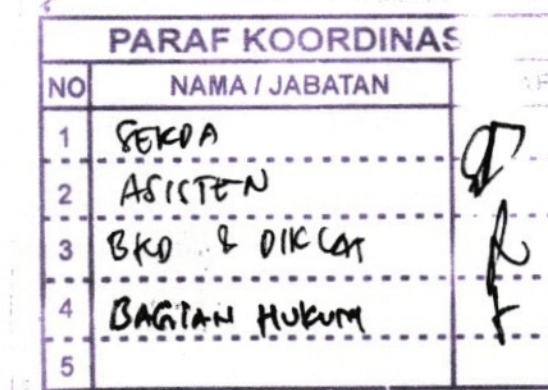 PARAF KOORDINAS
NO NAMA / JABATAN
1 SEKDA
2 ASISTEN
3 BKD & DIKLAT
4 BAGIAN HUKUM
5